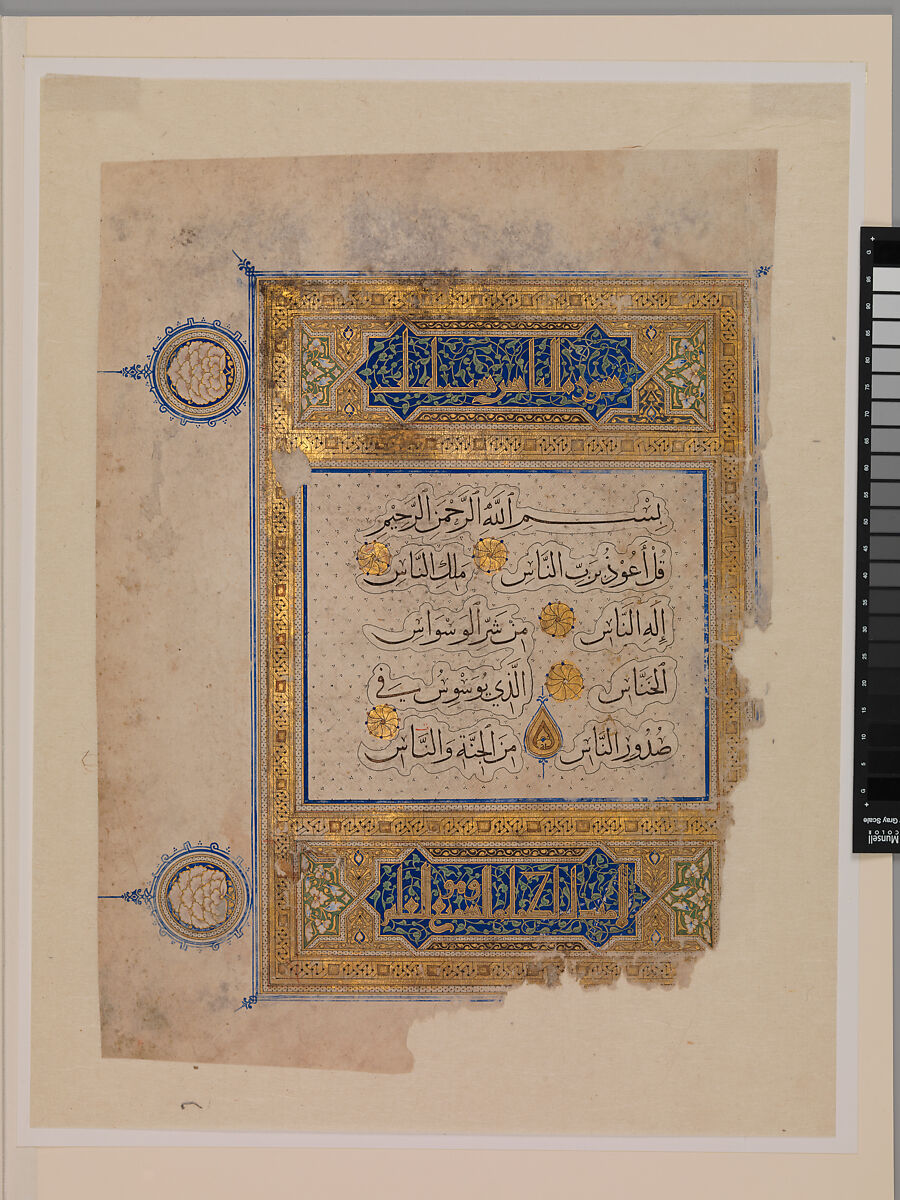 سورة الناس
بِسْمِ ٱللَّهِ ٱلرَّحْمٰنِ ٱلرَّحِيمِ
قُلْ أَعُوذُ بِرَبِّ النَّاسِ مَلِكِ النَّاسِ
إِلَهِ النَّاسِ مِنْ شَرِّ ٱلْوَسْوَاسِ
ٱلْخَنَّاسِ الَّذِي يُوَسْوِسُ فِي
صُدُورِ النَّاسِ مِنَ ٱلْجِنَّةِ وَالنَّاسِ
Munsell
COLOR
Gray Scale